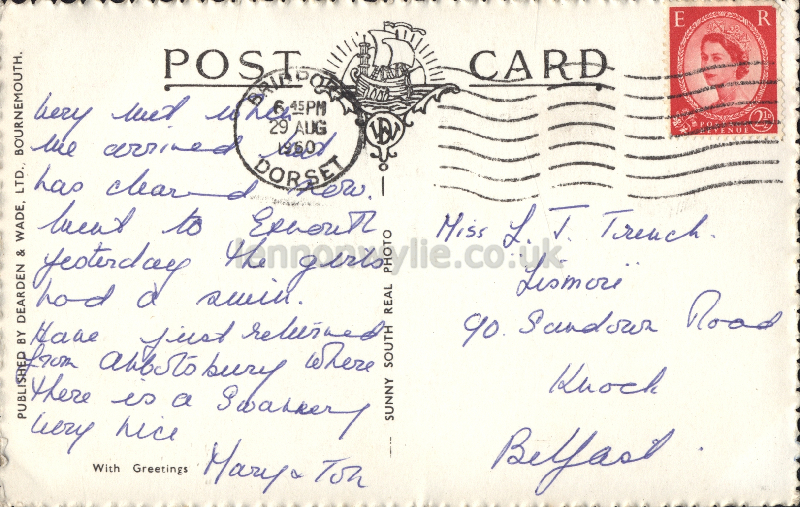 POST CARD
E R
POSTAGE
REVENUE 2½
BRIDPORT
6 45 PM
29 AUG
1960
DORSET
DW
Very wet when
we arrived but
has cleared now.
Went to Exmouth
yesterday the girls
had a swim.
Have just returned
from Abbotsbury where
there is a Swannery
very nice
With Greetings Mary & Tom
PUBLISHED BY DEARDEN & WADE, LTD., BOURNEMOUTH.
SUNNY SOUTH REAL PHOTO
Miss L. J. Trench.
"Lismore"
90. Sandown Road
Knock
Belfast.
lennonwylie.co.uk